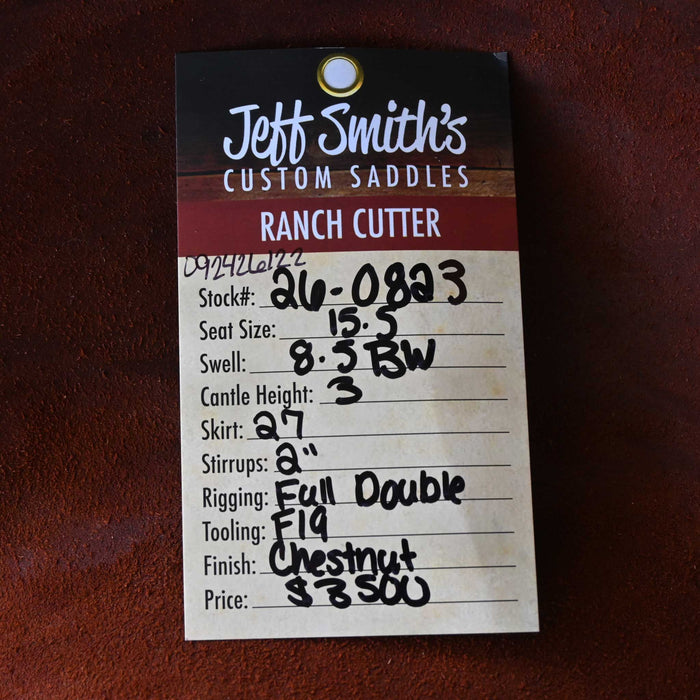 Jeff Smith's
CUSTOM SADDLES
RANCH CUTTER
092426122
Stock#: 26-0823
Seat Size: 15.5
Swell: 8.5 BW
Cantle Height: 3
Skirt: 27
Stirrups: 2"
Rigging: Full Double
Tooling: F19
Finish: Chestnut
Price: $3500